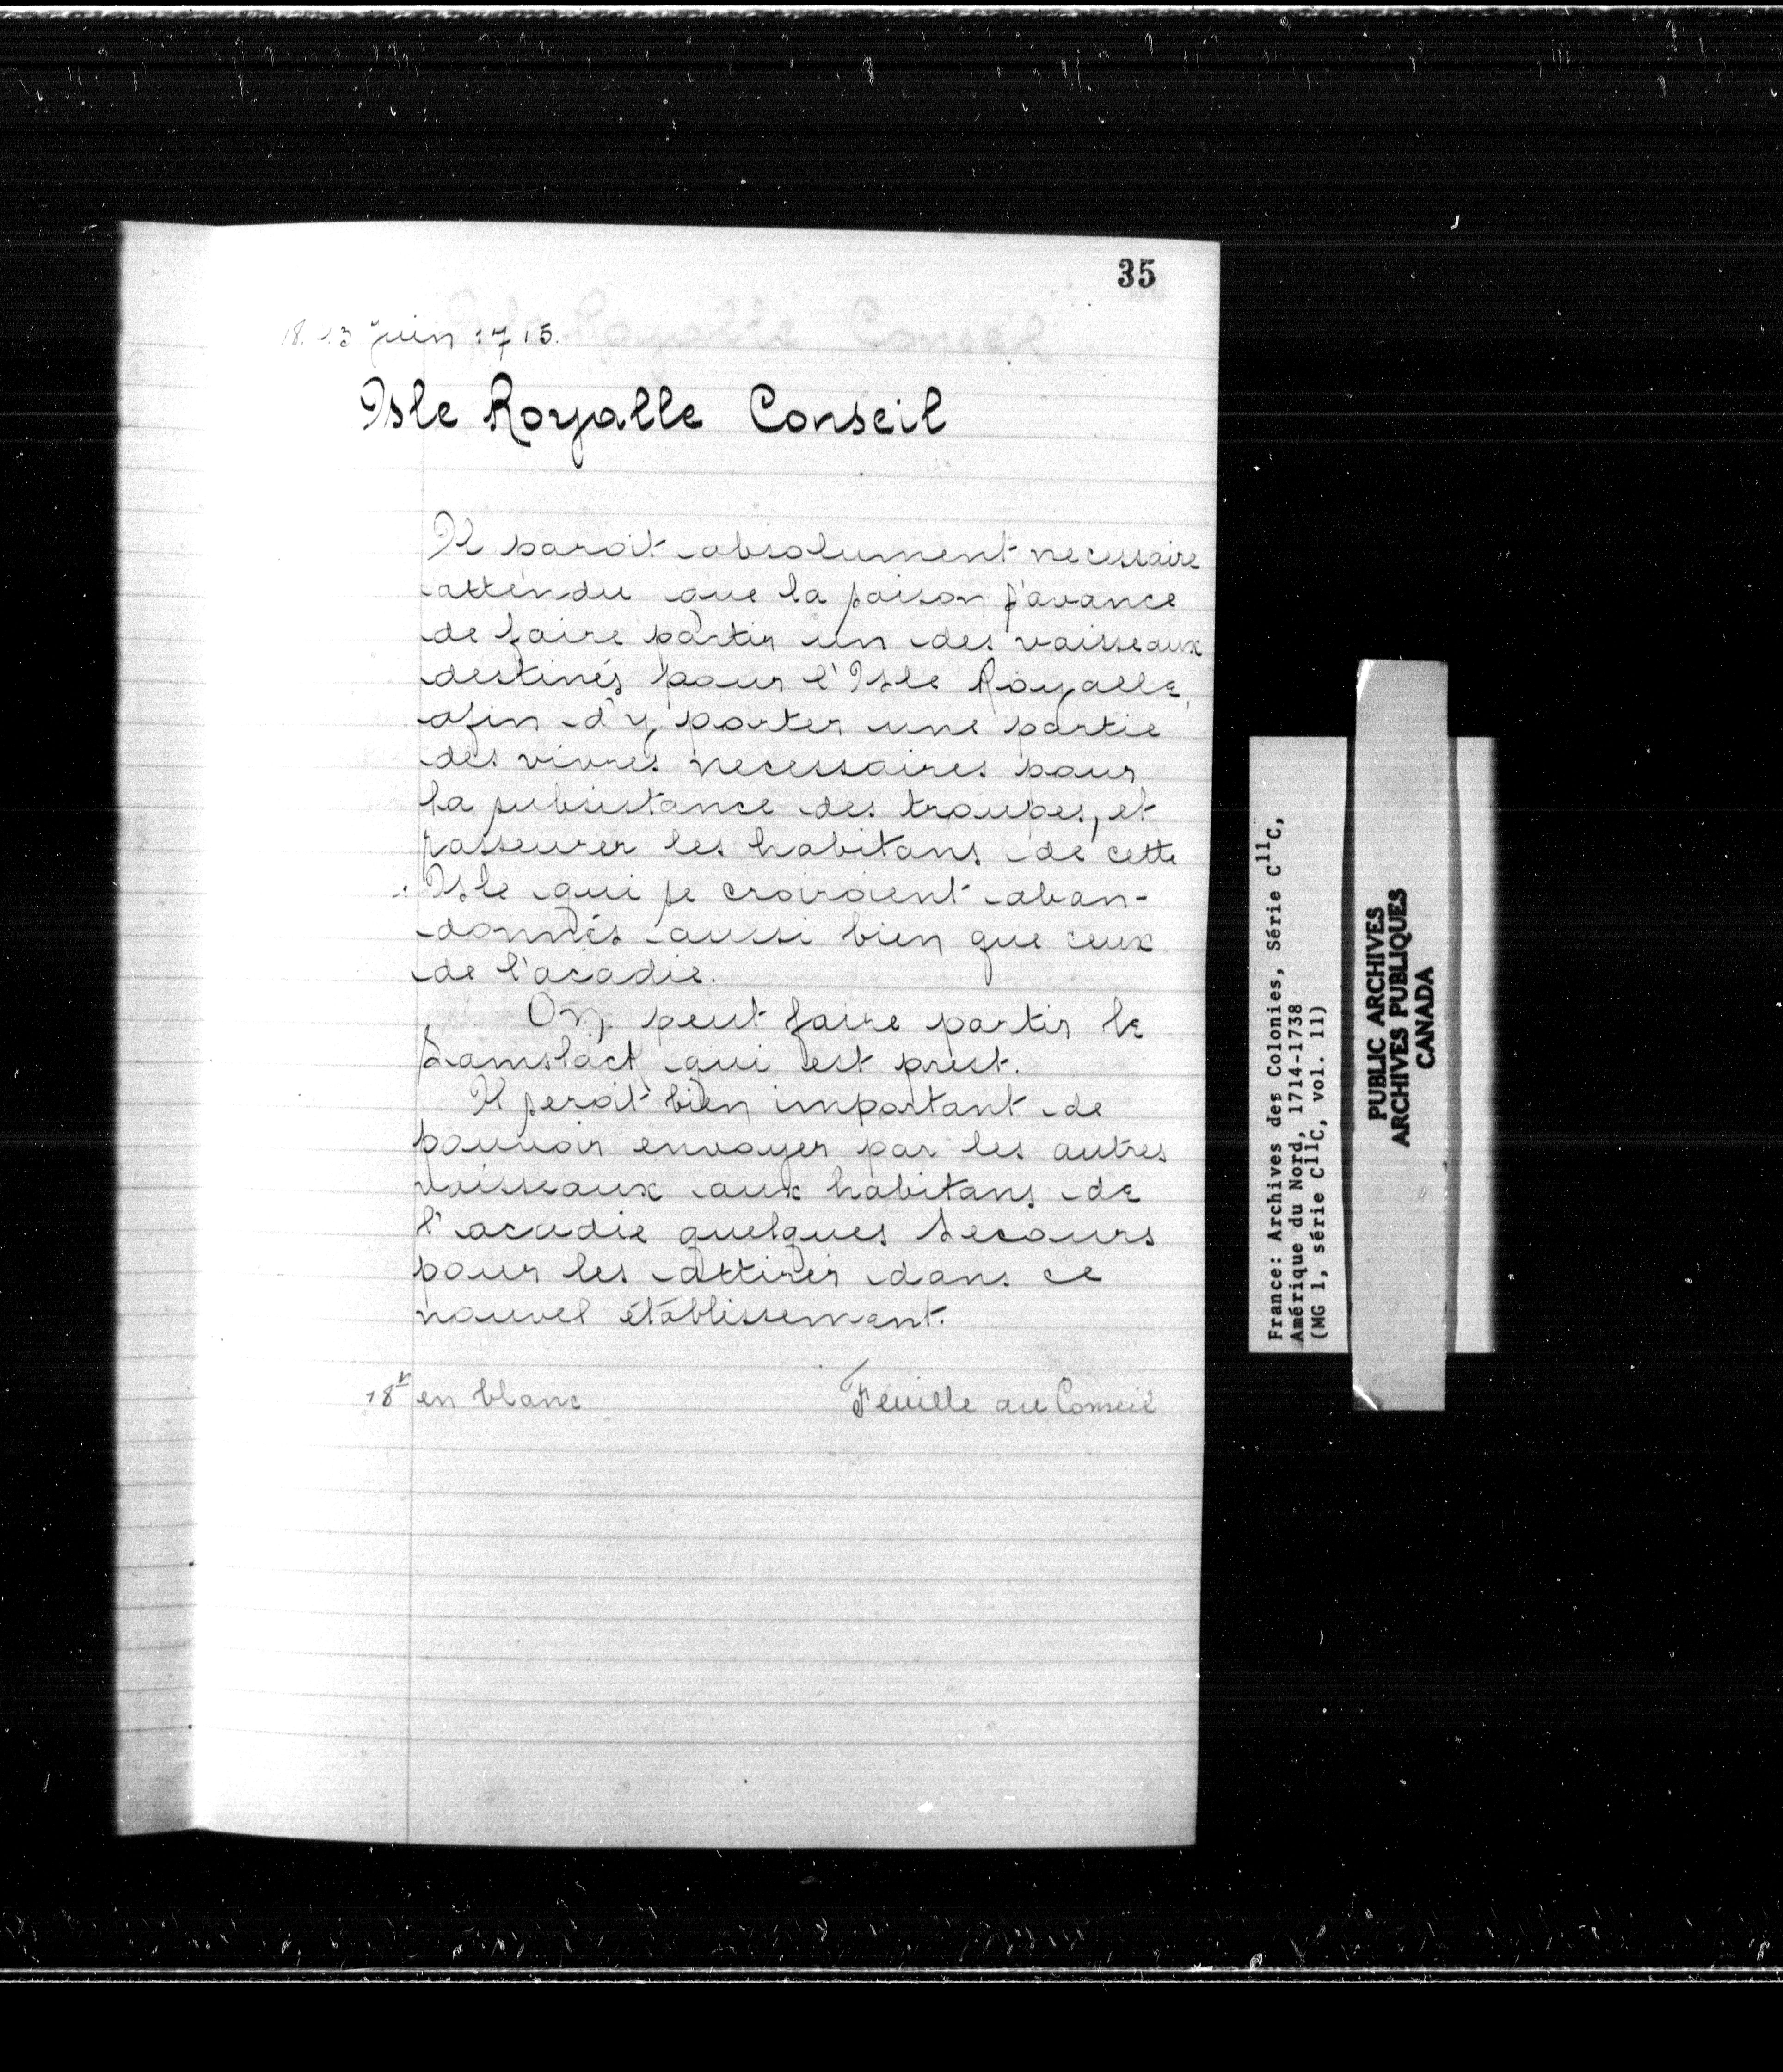 35
18. 13 Juin 1715.
Isle Royalle Conseil
Il paroit absolument necessaire
attendu que la saison s'avance
de faire partir un des vaisseaux
destinés pour l'Isle Royalle,
afin d'y porter une partie
des vivres necessaires pour
la subsistance des troupes, et
rasseurer les habitans de cette
Isle qui se croiroient aban-
donnés aussi bien que ceux
de l'acadie.
On peut faire partir le
qui est prest.
Il seroit bien important de
pouvoir envoyer par les autres
vaisseaux aux habitans de
l'acadie quelques secours
pour les attirer dans ce
nouvel établissement.
18v en blanc Feuille au Conseil
France: Archives des Colonies, Série C11C,
Amérique du Nord, 1714-1738
(MG 1, série C11C, vol. 11)
PUBLIC ARCHIVES
ARCHIVES PUBLIQUES
CANADA